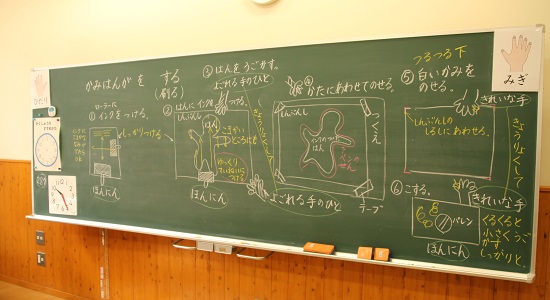 かみはんが を する
(刷る)
ローラーに
① インクをつける。
しっかりつける
ほんにん
② はんにインクをつける。
しんぶんし
はん
こまかい
ところにも
ゆっくり
ていねいに
つける
ほんにん
③ はんをうごかす。
よごれる手のひと
きょうりょくして
よごれる手のひと
④ かたにあわせてのせる。
しんぶんし
インクのついた
はん
つくえ
テープ
つるつる下
⑤ 白いかみを
のせる。
きれいな手
しんぶんしの
しるしにあわせる。
きょうりょくして
⑥ こする。
きれいな手
バレン
くるくると
小さくうご
かす
しっかりと
ほんにん
ひだり
みぎ